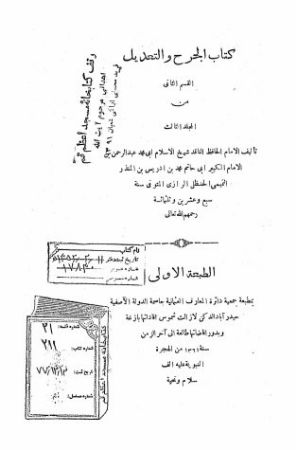 كتاب الجرح والتعديل
القسم الثاني
من
المجلد الثالث
تأليف الامام الحافظ الناقد شيخ الاسلام ابي محمد عبد الرحمن بن
الامام الكبير ابي حاتم محمد بن ادريس بن المنذر
التميمي الحنظلي الرازي المتوفى سنة
سبع وعشرين وثلثمائة
رحمهم الله تعالى
وقف كتابخانه مسجد اعظم قم
اهدائی مرحوم آیت الله
نام کتاب
الطبعة الاولى
بمطبعة جمعية دائرة المعارف العثمانية بعاصمة الدولة الآصفية
حيدرآباد الدكن لازالت شموس افاداتها بازغة
وبدور افاضاتها طالعة الى آخر الزمن
سنة من الهجرة
النبوية عليه الف
سلام وتحية
كتابخانه مسجد اعظم قم
شماره قفسه: ۲۱
شماره كتاب: ۲۱۱
تاريخ ثبت:
شماره مسلسل: